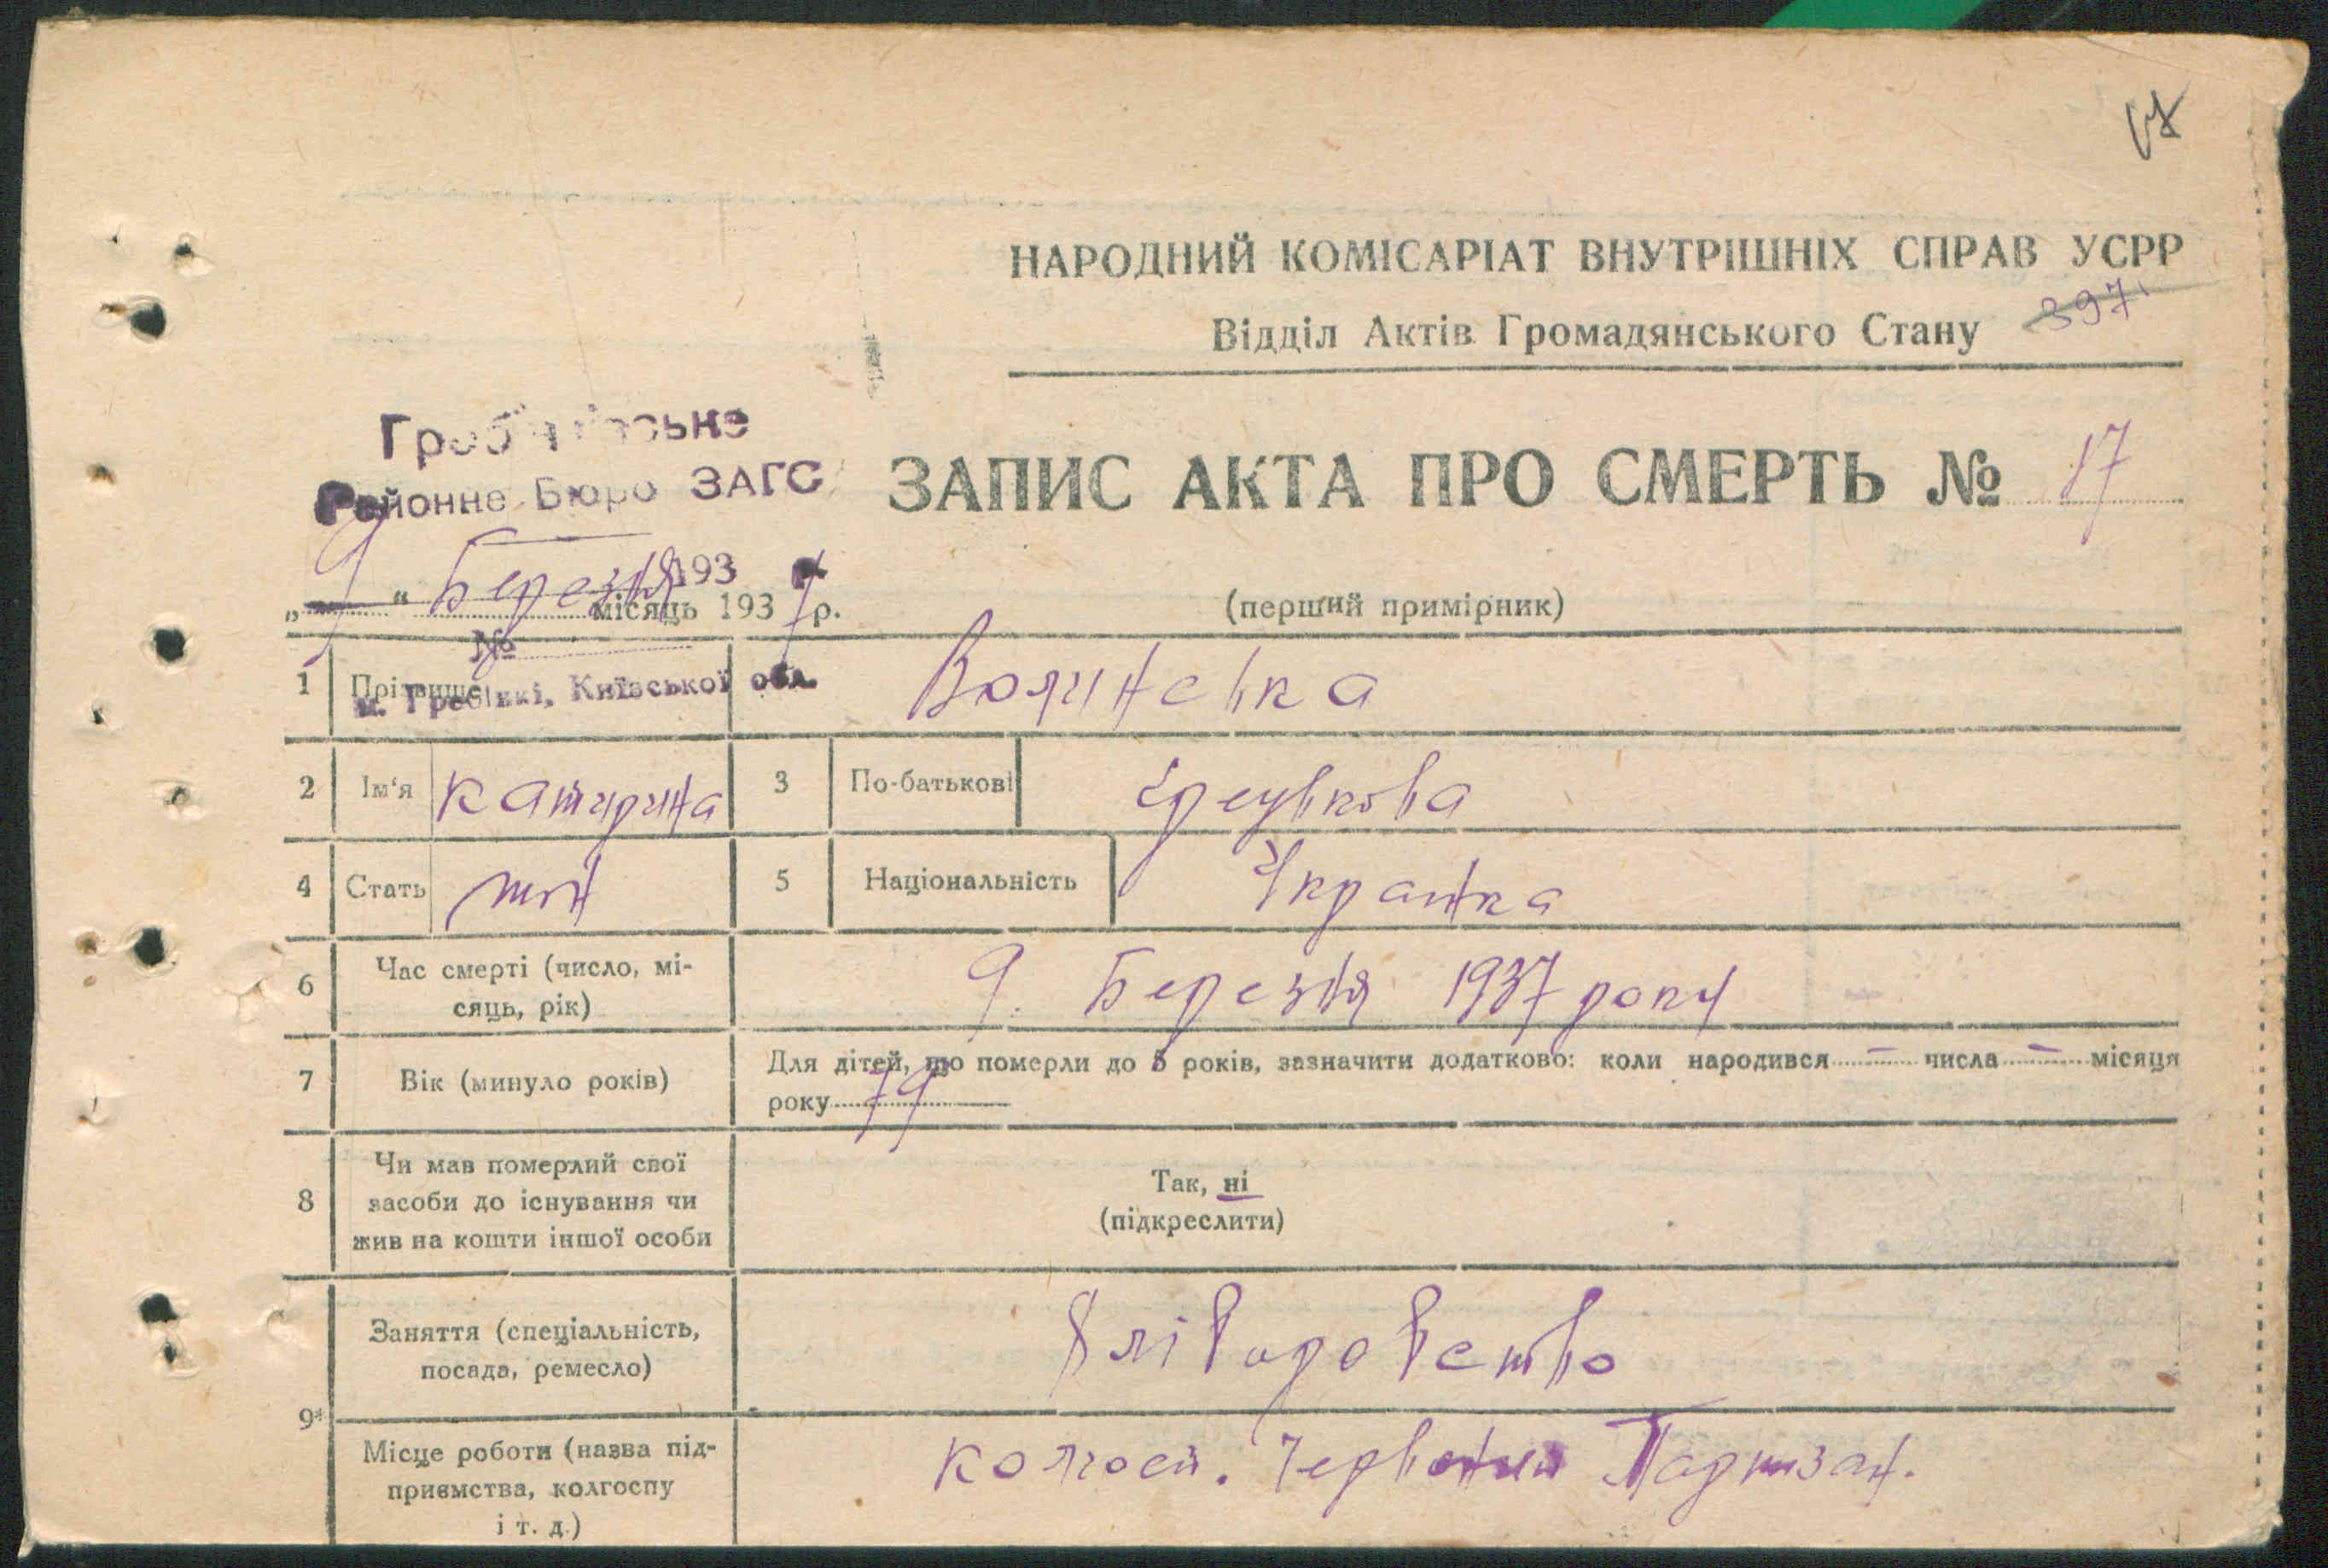 НАРОДНИЙ КОМІСАРІАТ ВНУТРІШНІХ СПРАВ УСРР
Відділ Актів Громадянського Стану 397
Районне Бюро ЗАГС
ЗАПИС АКТА ПРО СМЕРТЬ № 17
193
„ 9 “ Березня місяць 1937 р.
(перший примірник)
№
м. Гребінкі, Київської обл.
1 Прізвище Волиневка
2 Ім‘я Катирина 3 По-батькові
4 Стать жін 5 Національність Українка
6 Час смерті (число, мі-
сяць, рік) 9. Березня 1937 року
7 Вік (минуло років) Для дітей, що померли до 5 років, зазначити додатково: коли народився – числа – місяця
року 79
8 Чи мав померлий свої
засоби до існування чи
жив на кошти іншої особи
Так, ні
(підкреслити)
9* Заняття (спеціальність,
посада, ремесло)
Місце роботи (назва під-
приємства, колгоспу
і т. д.)
колгосп. Червоний Партизан.